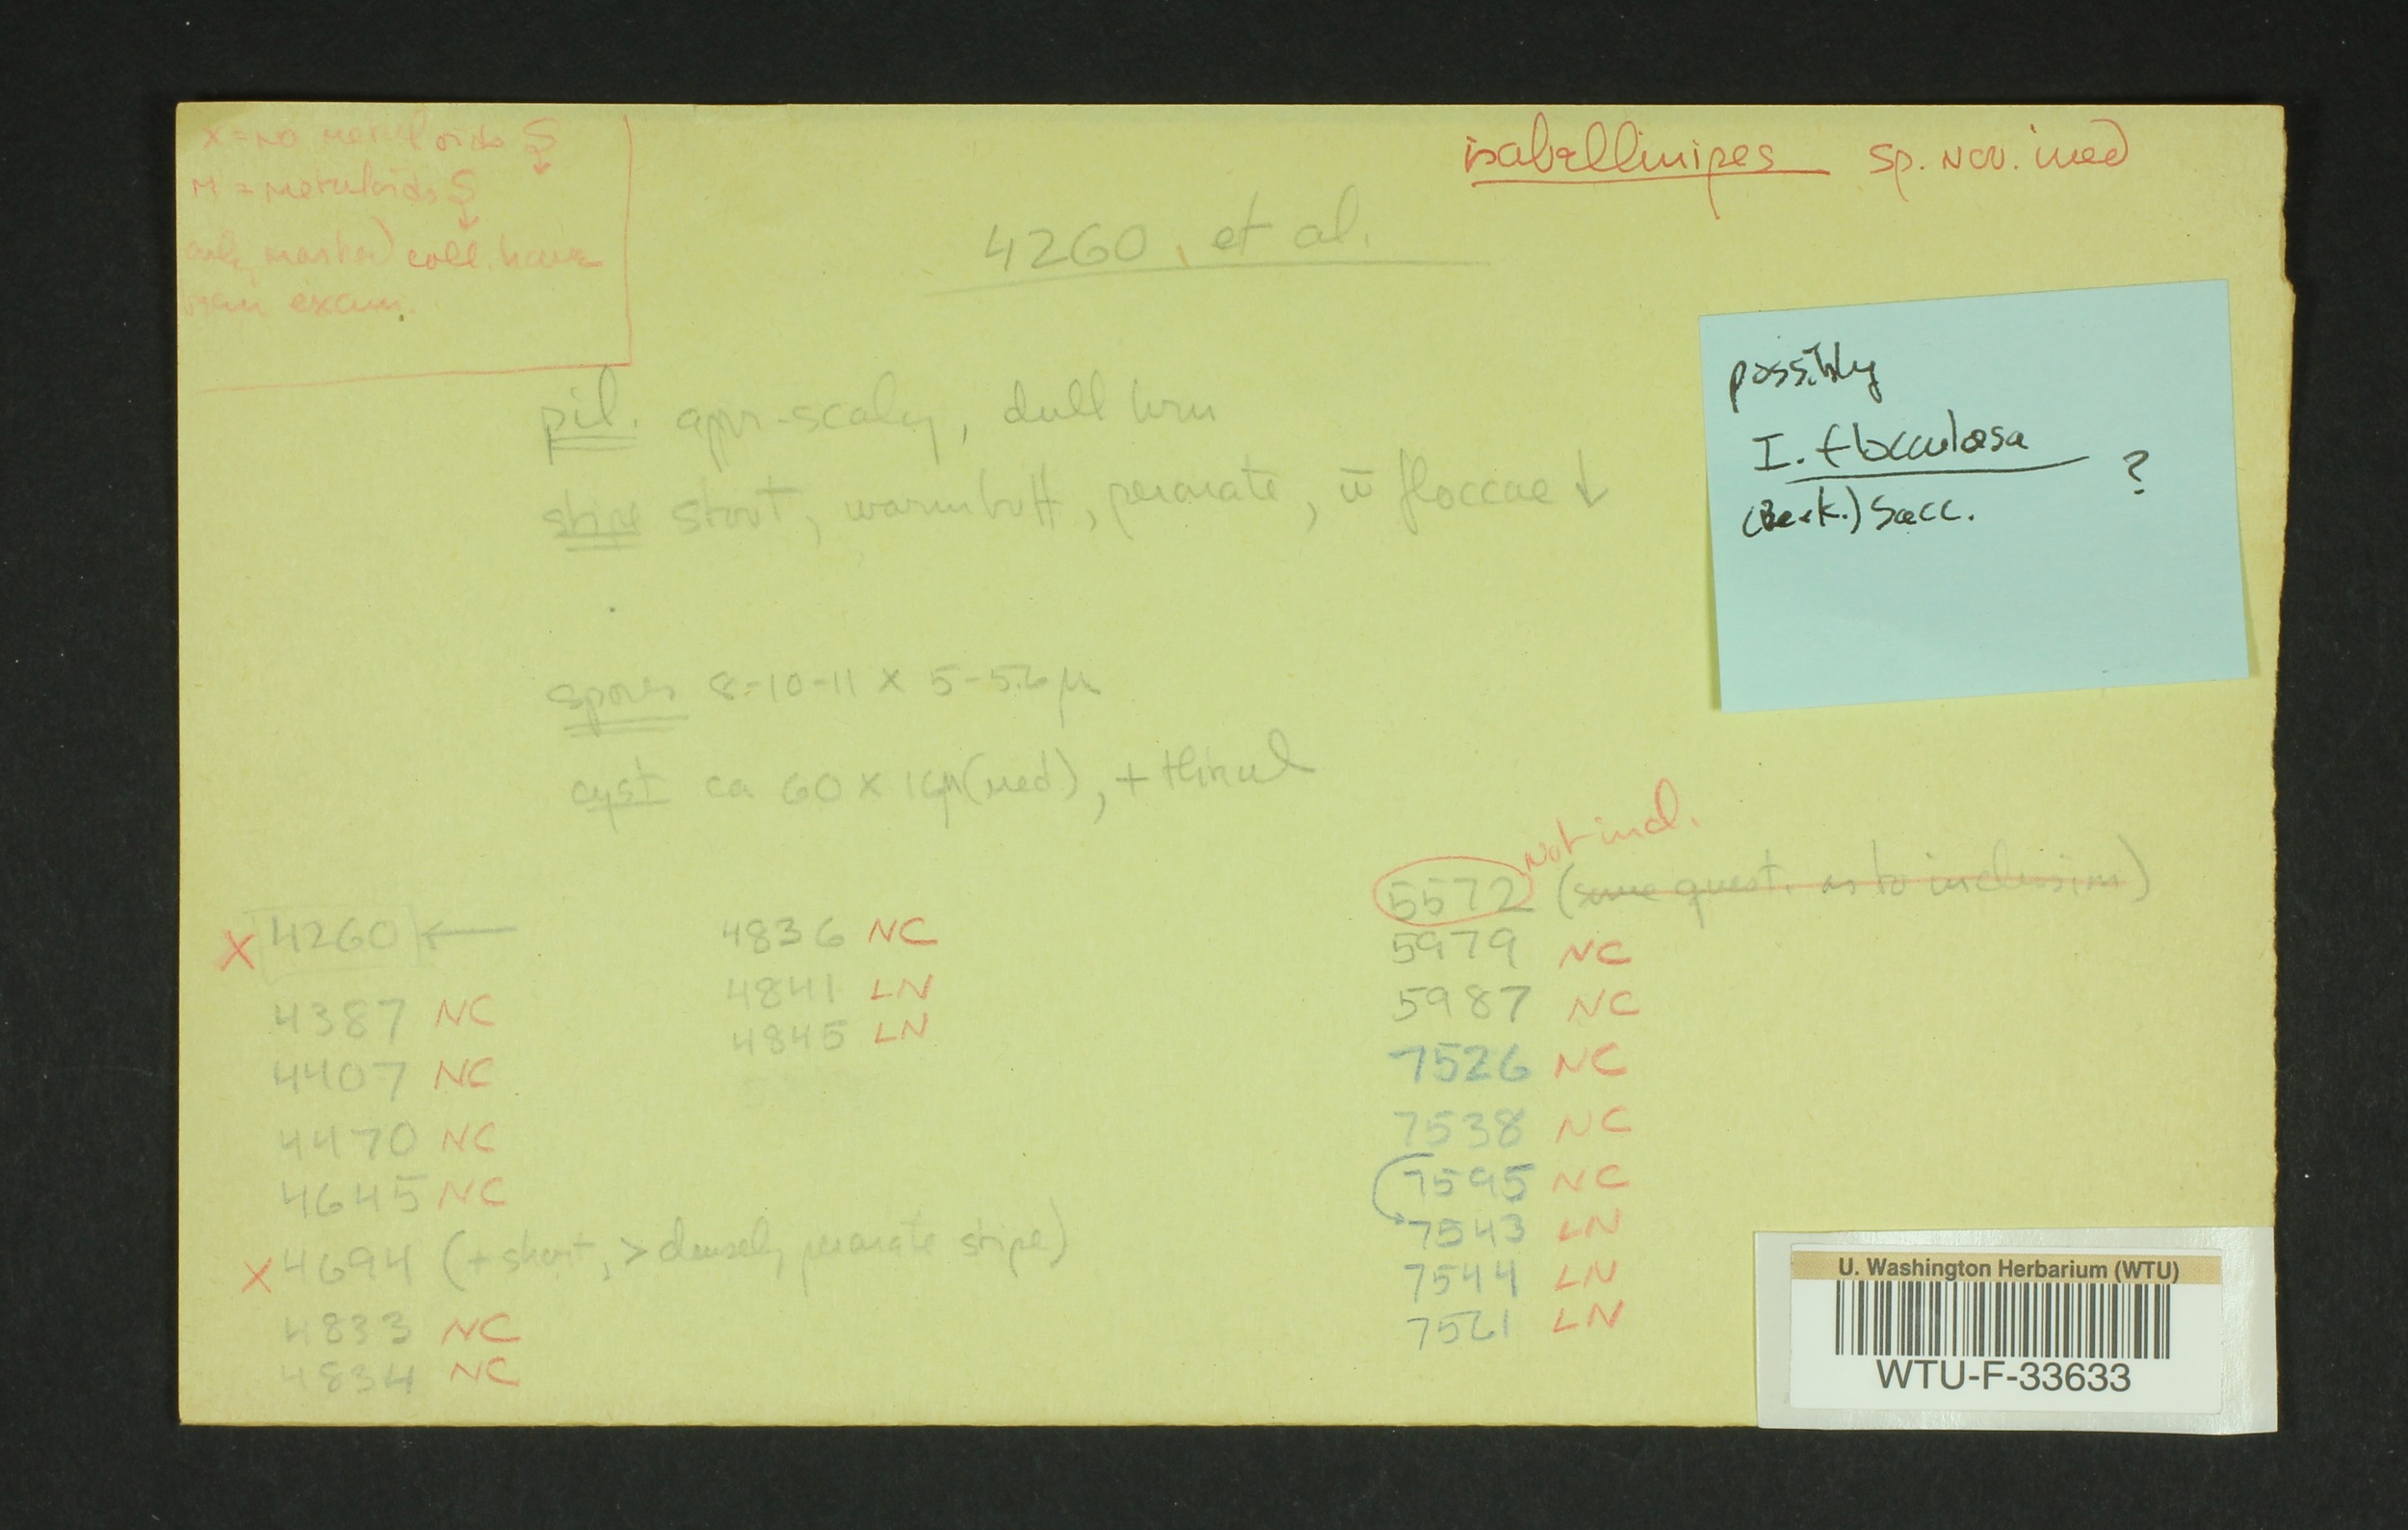 X = no metuloids S
M = metuloids S
only marked coll. have
been exam.
isabellinipes sp. nov. ined
4260, et al.
possibly
I. flocculosa ?
(Berk.) Sacc.
pil. appr-scaly, dull brn
stipe stout, warm buff, peronate, w̄ floccae ↓
spores 8-10-11 x 5-5.6 µ
cyst ca 60 x 16µ (med), + thinwl
X 4260 ←
4387 NC
4407 NC
4470 NC
4645 NC
X 4694 (+ short, > densely peronate stipe)
4833 NC
4834 NC
4836 NC
4841 LN
4845 LN
Not incl.
5572 (some quest. as to inclusion)
5979 NC
5987 NC
7526 NC
7538 NC
7595 NC
7543 LN
7544 LN
7561 LN
U. Washington Herbarium (WTU)
WTU-F-33633